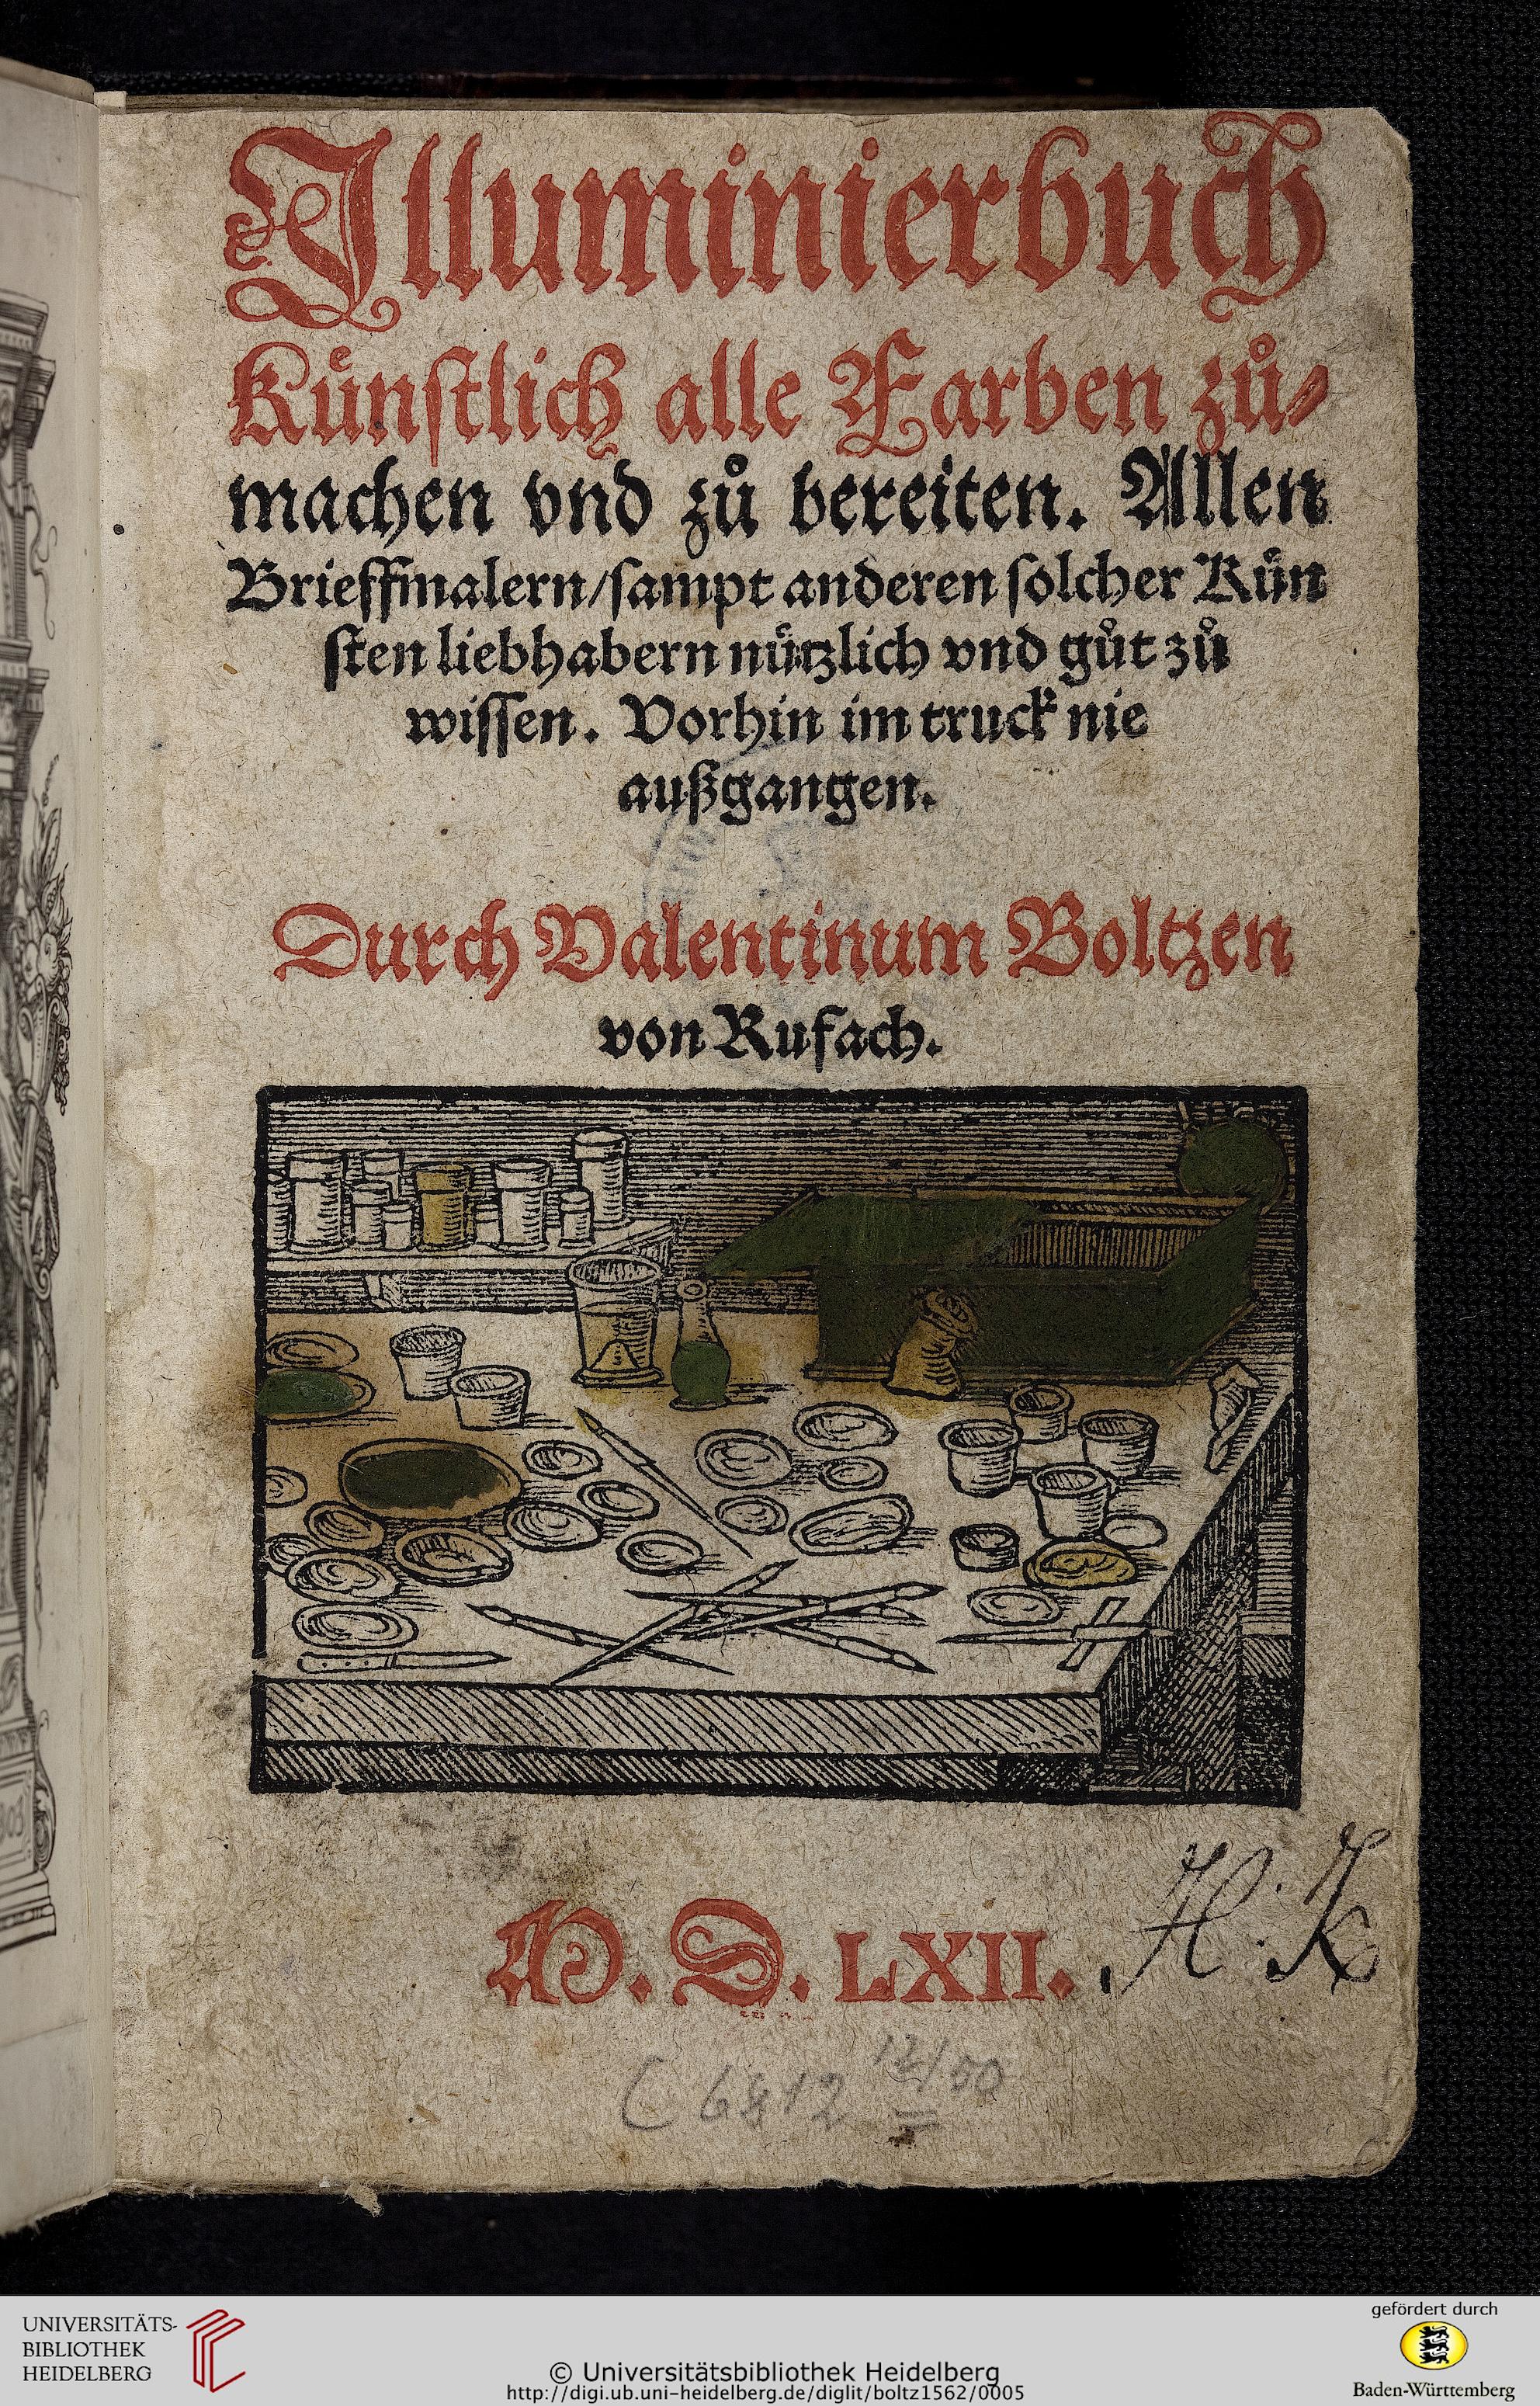 Illuminierbuch
Kuͤnſtlich alle Farben zů⸗
machen vnd zů bereiten. Allen
Brieffmalern/ſampt anderen ſolcher Kuͤn
ſten liebhabern nuͤtzlich vnd gůt zů
wiſſen. Vorhin im truck nie
außgangen.
Durch Valentinum Boltzen
von Rufach.
M. D. LXII.
H. K
C 6812 12/50
UNIVERSITÄTS-
BIBLIOTHEK
HEIDELBERG
© Universitätsbibliothek Heidelberg
http://digi.ub.uni-heidelberg.de/diglit/boltz1562/0005
gefördert durch
Baden-Württemberg